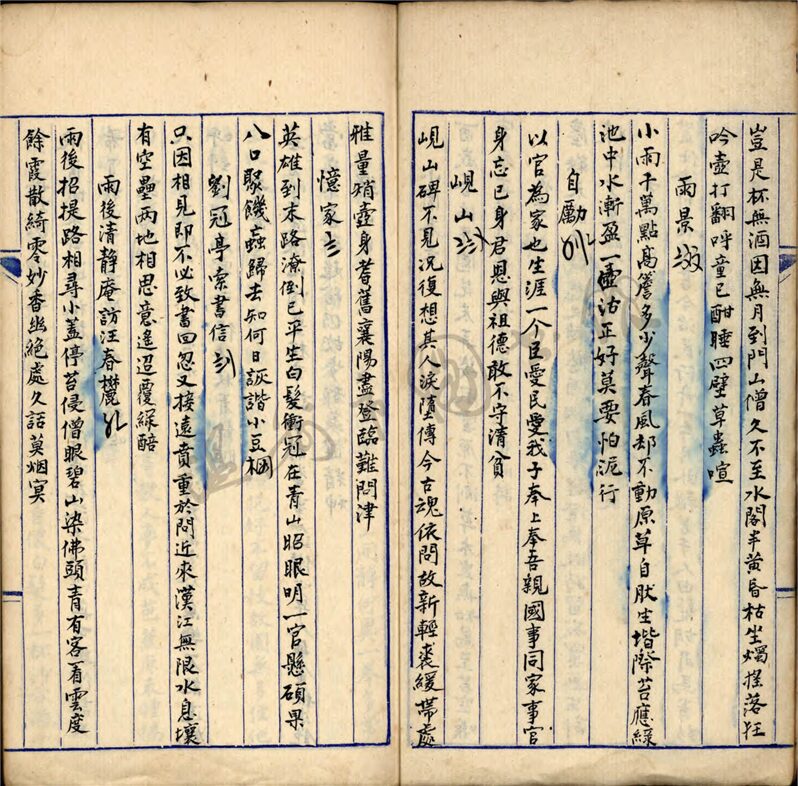 豈是杯無酒因無月到門山僧久不至水閣半黃昏枯坐燭搖落狂
吟壺打翻呼童已酣睡四壁草蟲喧
雨景
小雨千萬點高簷多少聲春風却不動原草自肽生堦際苔應綠
池中水漸盈一壺沽正好莫要怕泥行
自勵
以官為家也生涯一个臣愛民愛我子奉上奉吾親國事同家事官
身忘己身君恩與祖德敢不守清貧
峴山
峴山碑不見況復想其人淚墮傳今古魂依問故新輕裘緩帶處
雅量矟壺身耆舊襄陽盡登臨難問津
憶家
英雄到末路潦倒已平生白髮衝冠在青山昭眼明一官懸碩果
八口聚饑蟲歸去知何日詼諧小豆棚
劉冠亭索書信
只因相見即不必致書回忽又接遠賁重於問近來漢江無限水息壤
有空壘兩地相思意遙迢覆綠醅
雨後清靜庵訪汪春欖
雨後招提路相尋小蓋停苔侵僧眼碧山染佛頭青有客看雲度
餘霞散綺零妙香幽絕處久話莫烟冥